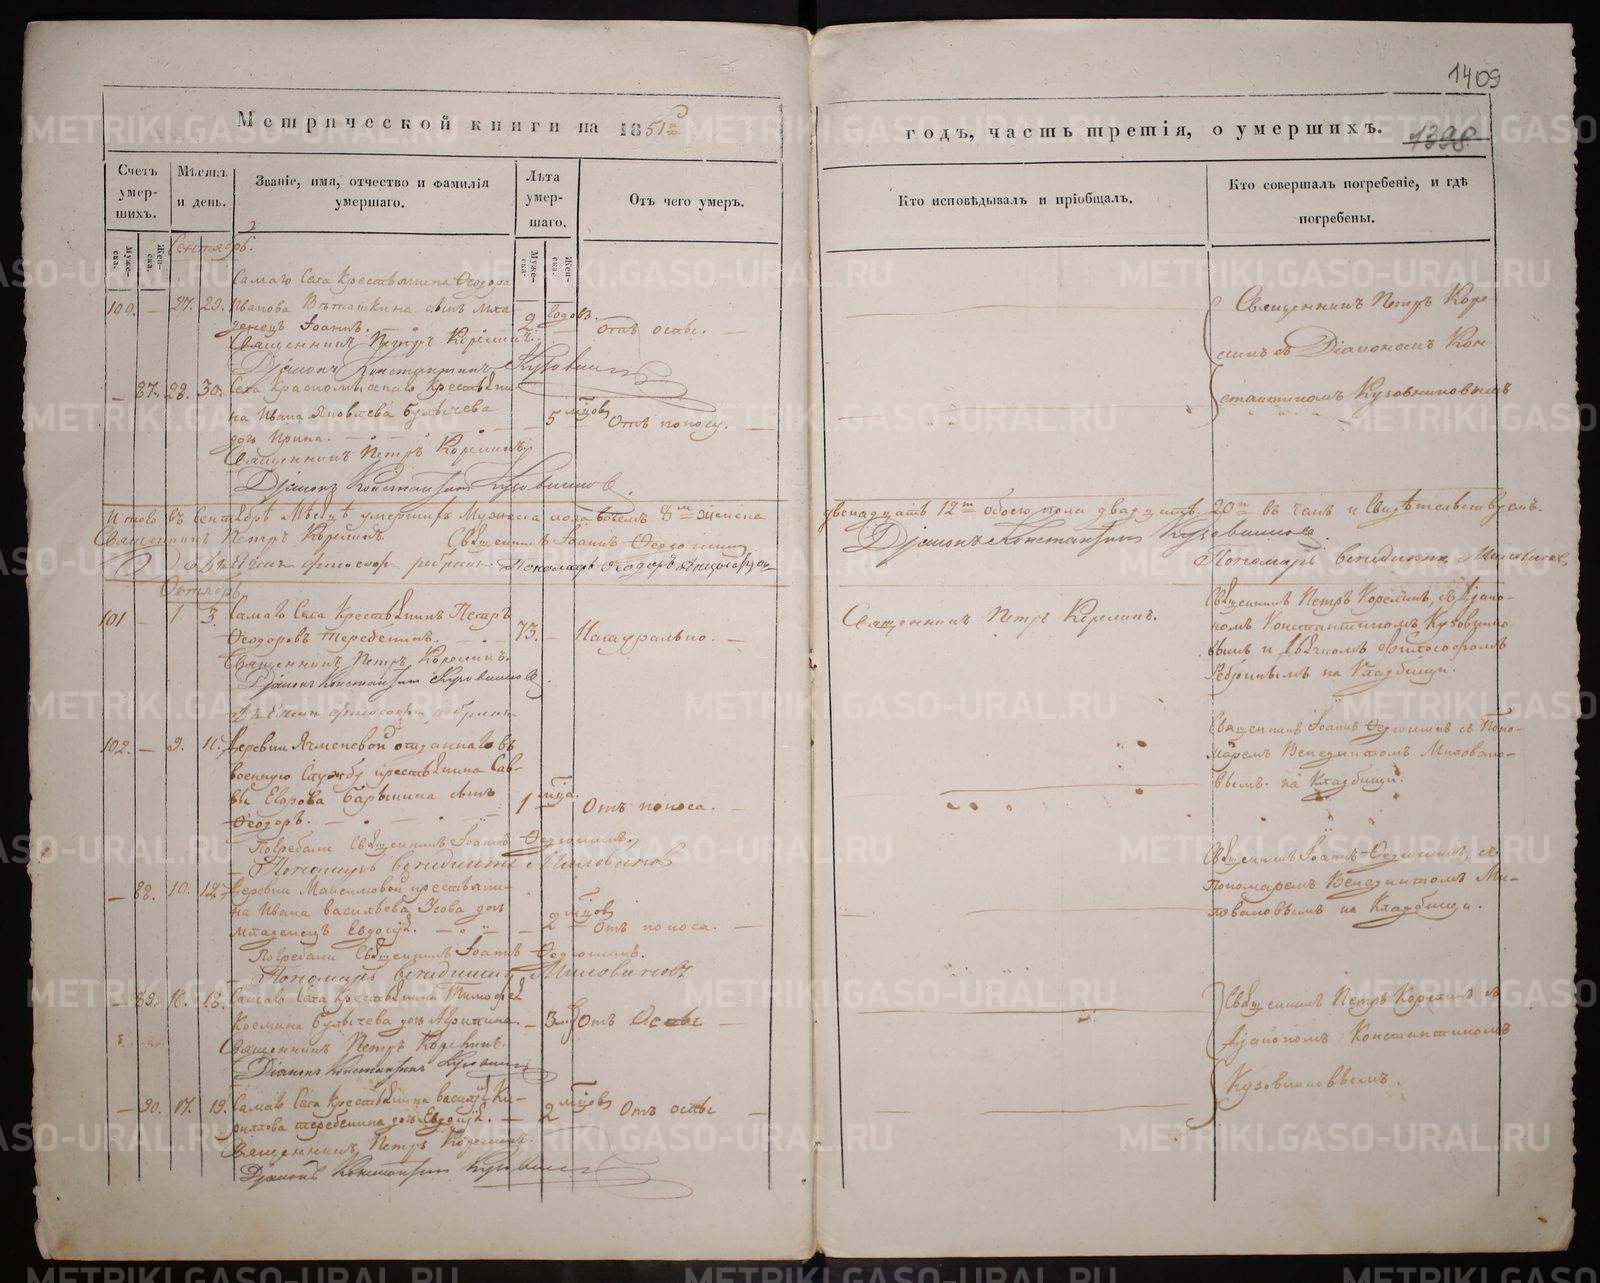 1409
Метрической книги на 1851й
годъ, часть третія, о умершихъ.
1398
Счетъ умер-шихъ.
Мѣсяцъ и день.
Званіе, имя, отчество и фамилія умершаго.
Лѣта умер-шаго.
Отъ чего умеръ.
Кто исповѣдывалъ и пріобщалъ.
Кто совершалъ погребеніе, и гдѣ погребены.
Муже-ска.
Жен-ска.
Муже-ска.
Жен-ска.
Сентябрь
Самаго Села Крестьянина Ѳеодора
100. — 27. 29. Иванова сынъ мла
денецъ Іоаннъ. 2 годов. отъ оспы.
Священникъ Петръ Корелинъ
Діаконъ Константинъ Кузовниковъ
— 87. 28. 30. Села крестьяни-
на Ивана Яковлева Булычева
дочь Ирина. 5 мѣсцовъ Отъ поносу.
Священникъ Петръ Корелинъ
Діаконъ Константинъ Кузовниковъ.
Священникъ Петръ Коре
линъ съ Діакономъ Кон
стантиномъ Кузовниковымъ
Итого въ Сентябрѣ Мѣсяцѣ умершихъ Мужеска пола восемь 8м женска
двенадцать 12ть обоего пола двадцать 20ть въ чемъ и Свидѣтельствуемъ.
Священникъ Петръ Корелинъ. Священникъ Іоаннъ
Діаконъ Константинъ Кузовниковъ.
Пономарь Ѳеодоръ
Пономарь Венедиктъ
Октябрь
101 — 1 3. Самаго Села Крестьянинъ Петръ
Ѳеодоровъ Теребенинъ. 73. — Натурально. —
Священникъ Петръ Корелинъ.
Діаконъ Константинъ Кузовниковъ.
Священникъ Петръ Корелинъ.
Священникъ Петръ Корелинъ, съ Діако-
номъ Константиномъ Кузовнико-
вымъ и Дьячкомъ Философомъ
Ребринымъ на Кладбищи.
102. — 9. 11. Деревни Ячменевой отданнаго въ
военную Службу крестьянина Сав-
вы Егорова Барышна сынъ
Ѳеодоръ. 1 мѣца. Отъ поноса. —
Погребали Священникъ Іоаннъ
Пономарь Венедиктъ
Священникъ Іоаннъ съ Поно-
маремъ Венедиктомъ Миловано-
вымъ. на Кладбищи.
— 88. 10. 12. Деревни Максимовой крестьяни-
на Ивана Васильева Усова дочь
младенецъ Евдокія. — 2 мѣсцовъ Отъ поноса. —
Погребали Священникъ Іоаннъ
Пономарь Венедиктъ
Священникъ Іоаннъ съ
Пономаремъ Венедиктомъ Ми-
ловановымъ на Кладбищи.
— 89. 16. 18. Самаго Села Крестьянина Тимофея
Космина Булычева дочь — 3 Отъ Оспы —
Священникъ Петръ Корелинъ.
Діаконъ Константинъ Кузовниковъ
— 90. 17. 19. Самаго Села Крестьянина Василья Ки-
рилова Теребенина дочь Евдокія. — 2 мѣсцовъ Отъ оспы —
Священникъ Петръ Корелинъ.
Діаконъ Константинъ Кузовниковъ
Священникъ Петръ Корелинъ съ
Діакономъ Константиномъ
Кузовниковымъ.
METRIKI.GASO-URAL.RU